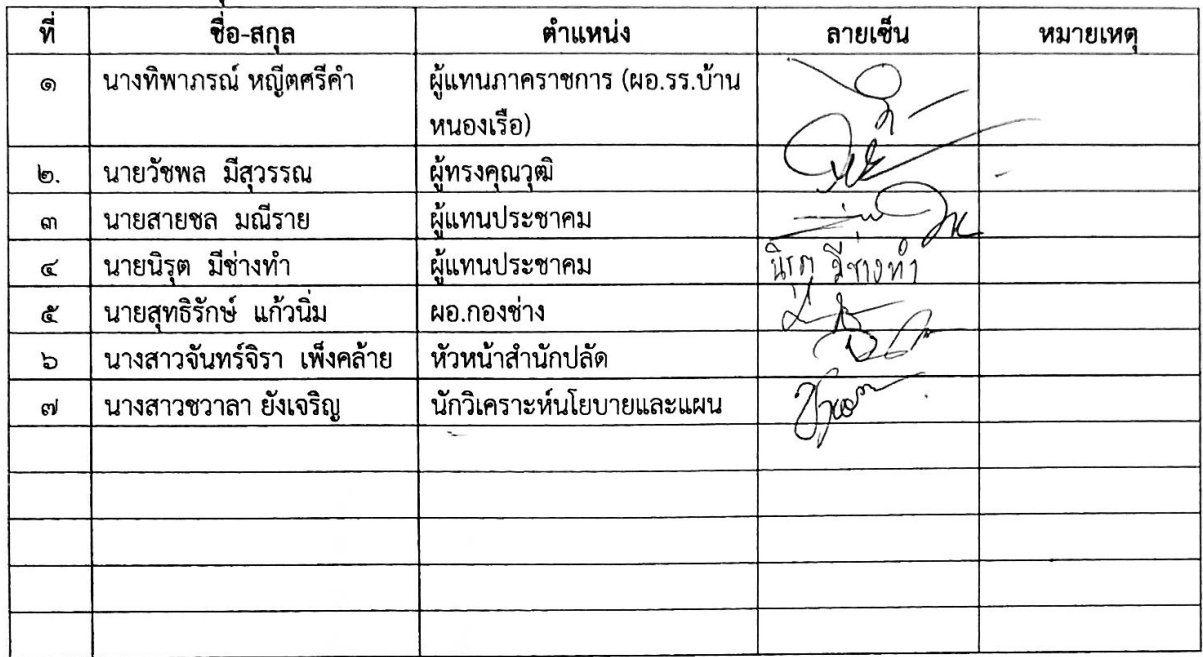 ที่ ชื่อ-สกุล ตำแหน่ง ลายเซ็น หมายเหตุ
๑ นางทิพาภรณ์ หญีตศรีคำ ผู้แทนภาคราชการ (ผอ.รร.บ้าน
หนองเรือ)
๒. นายวัชพล มีสุวรรณ ผู้ทรงคุณวุฒิ
๓ นายสายชล มณีราย ผู้แทนประชาคม
๔ นายนิรุต มีช่างทำ ผู้แทนประชาคม นิรุต มีช่างทำ
๕ นายสุทธิรักษ์ แก้วนิ่ม ผอ.กองช่าง
๖ นางสาวจันทร์จิรา เพ็งคล้าย หัวหน้าสำนักปลัด
๗ นางสาวชวาลา ยังเจริญ นักวิเคราะห์นโยบายและแผน